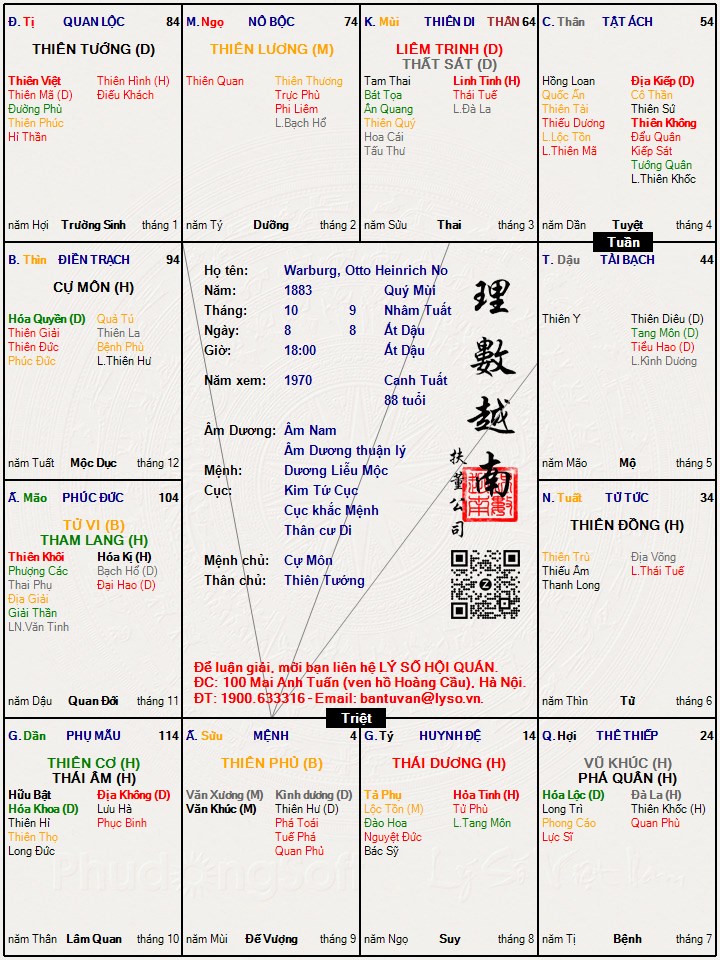 Đ. Tị QUAN LỘC 84
THIÊN TƯỚNG (D)
Thiên Việt Thiên Hình (H)
Thiên Mã (D) Điếu Khách
Đường Phù
Thiên Phúc
Hỉ Thần
năm Hợi Trường Sinh tháng 1
M. Ngọ NÔ BỘC 74
THIÊN LƯƠNG (M)
Thiên Quan Thiên Thương
Trực Phù
Phi Liêm
L.Bạch Hổ
năm Tý Dưỡng tháng 2
K. Mùi THIÊN DI THÂN 64
LIÊM TRINH (D)
THẤT SÁT (D)
Tam Thai Linh Tinh (H)
Bát Tọa Thái Tuế
Ân Quang L.Đà La
Thiên Quý
Hoa Cái
Tấu Thư
năm Sửu Thai tháng 3
C. Thân TẬT ÁCH 54
Hồng Loan Địa Kiếp (D)
Quốc Ấn Cô Thần
Thiên Tài Thiên Sứ
Thiếu Dương Thiên Không
L.Lộc Tồn Đẩu Quân
L.Thiên Mã Kiếp Sát
Tướng Quân
L.Thiên Khốc
năm Dần Tuyệt tháng 4
Tuần
B. Thìn ĐIỀN TRẠCH 94
CỰ MÔN (H)
Hóa Quyền (D) Quả Tú
Thiên Giải Thiên La
Thiên Đức Bệnh Phù
Phúc Đức L.Thiên Hư
năm Tuất Mộc Dục tháng 12
Họ tên: Warburg, Otto Heinrich No
Năm: 1883 Quý Mùi
Tháng: 10 9 Nhâm Tuất
Ngày: 8 8 Ất Dậu
Giờ: 18:00 Ất Dậu
Năm xem: 1970 Canh Tuất
88 tuổi
Âm Dương: Âm Nam
Âm Dương thuận lý
Mệnh: Dương Liễu Mộc
Cục: Kim Tứ Cục
Cục khắc Mệnh
Thân cư Di
Mệnh chủ: Cự Môn
Thân chủ: Thiên Tướng
理數越南
扶董公司
Để luận giải, mời bạn liên hệ LÝ SỐ HỘI QUÁN.
ĐC: 100 Mai Anh Tuấn (ven hồ Hoàng Cầu), Hà Nội.
ĐT: 1900.633316 - Email: bantuvan@lyso.vn.
T. Dậu TÀI BẠCH 44
Thiên Y Thiên Diêu (D)
Tang Môn (D)
Tiểu Hao (D)
L.Kình Dương
năm Mão Mộ tháng 5
Ấ. Mão PHÚC ĐỨC 104
TỬ VI (B)
THAM LANG (H)
Thiên Khôi Hóa Kị (H)
Phượng Các Bạch Hổ (D)
Thai Phụ Đại Hao (D)
Địa Giải
Giải Thần
LN.Văn Tinh
năm Dậu Quan Đới tháng 11
N. Tuất TỬ TỨC 34
THIÊN ĐỒNG (H)
Thiên Trù Địa Võng
Thiếu Âm L.Thái Tuế
Thanh Long
năm Thìn Tử tháng 6
Triệt
G. Dần PHỤ MẪU 114
THIÊN CƠ (H)
THÁI ÂM (H)
Hữu Bật Địa Không (D)
Hóa Khoa (D) Lưu Hà
Thiên Hỉ Phục Binh
Thiên Thọ
Long Đức
năm Thân Lâm Quan tháng 10
Ấ. Sửu MỆNH 4
THIÊN PHỦ (B)
Văn Xương (M) Kình dương (D)
Văn Khúc (M) Thiên Hư (D)
Phá Toái
Tuế Phá
Quan Phủ
năm Mùi Đế Vượng tháng 9
G. Tý HUYNH ĐỆ 14
THÁI DƯƠNG (H)
Tả Phụ Hỏa Tinh (H)
Lộc Tồn (M) Tử Phù
Đào Hoa L.Tang Môn
Nguyệt Đức
Bác Sỹ
năm Ngọ Suy tháng 8
Q. Hợi THÊ THIẾP 24
VŨ KHÚC (H)
PHÁ QUÂN (H)
Hóa Lộc (D) Đà La (H)
Long Trì Thiên Khốc (H)
Phong Cáo Quan Phù
Lực Sĩ
năm Tị Bệnh tháng 7